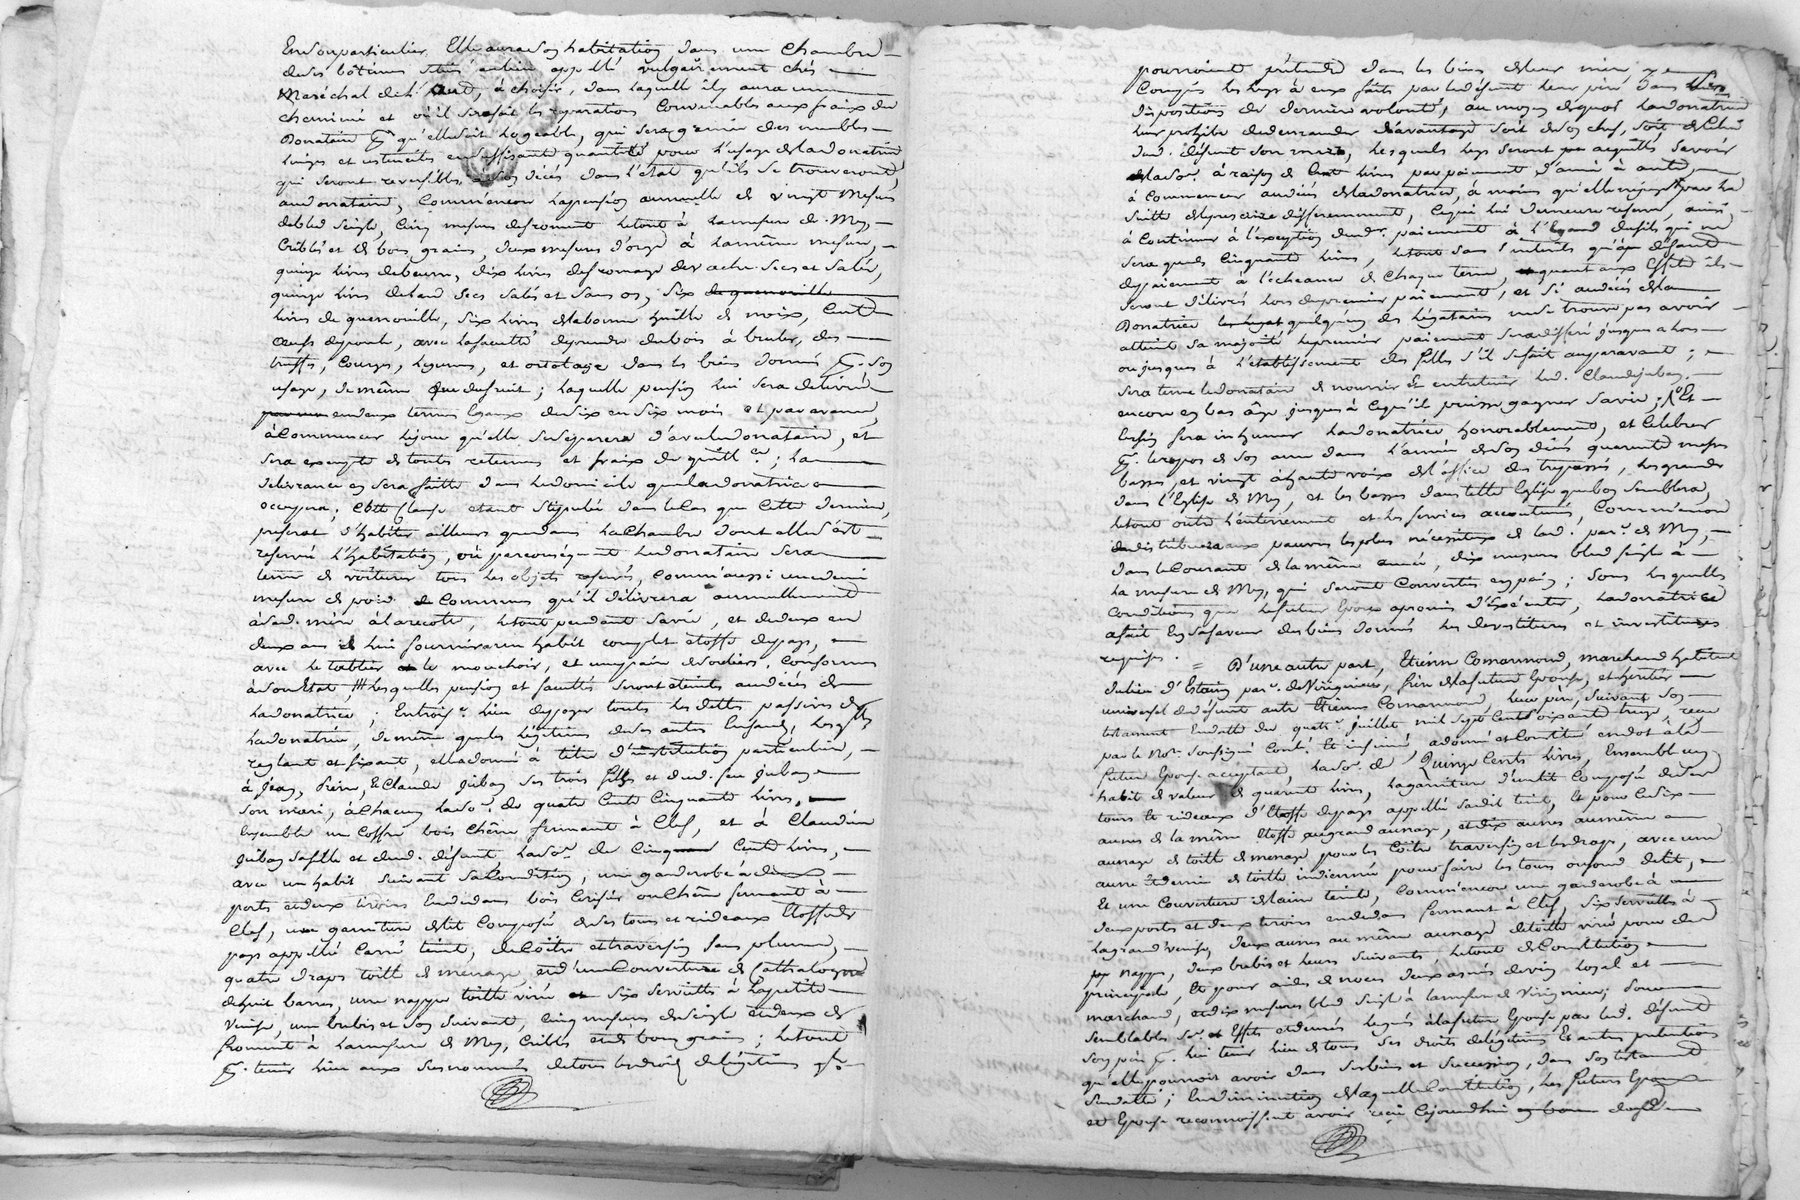 En son particulier. Elle aura son habitation dans une chambre
de ses bâtimens situés au lieu appellé vulgairement chés
Maréchal dud. à choisir, dans laquelle il y aura une
cheminée et où il sera fait les réparations convenables aux fraix du
Donataire pr. qu'elle soit logeable, qui sera garnie des meubles
linges et ustenciles en suffisante quantité pour l'usage de la donatrice
qui seront reversibles à son décès dans l'état qu'ils se trouveront
au donataire, comm'encor la pension annuelle de vingt mesures
de bled seigle, cinq mesures de froment le tout à la mesure de
criblés et de bons grains, deux mesures d'orge à la même mesure,
quinze livres de beurre, dix livres de fromage de vache secs et salés,
quinze livres de lard secs salés et sans os, six de quenouille
livres de quenouille, six livres de la bonne huille de noix, cent
œufs de poule, avec la faculté de prendre du bois à bruler, des
truffes, courges, legumes, et ortolage dans les biens donnés pr. son
usage, de même que du fruit; laquelle pension lui sera delivrée
en deux termes egaux de six en six mois et par avance,
à commencer le jour qu'elle se séparera d'avec le donataire, et
sera exempte de toutes retenues et fraix de quittce; la
delivrance en sera faitte dans le domicile que la donatrice
occupera; cette clause etant stipulée dans le cas que cette derniere,
préferat d'habiter ailleurs que dans la chambre dont elle s'est
reservée l'habitation, où par conséquent le donataire sera
tenu de voiturer tous les objets reservés, comm'aussi une demi
mesure de pois communs qu'il délivrera annuellement
à sad. mère à la recolte, le tout pendant sa vie, et de deux en
deux ans il lui fournira un habit complet etoffe de pays,
avec le tablier et le mouchoir, et une paire de souliers, conformes
à son Etat, lesquelles pension et facultés seront eteintes au décès de
la donatrice; Entroisr. lieu de payer toutes les dettes passives de
la donatrice, de même que les légitimes de ses autres Enfans, lesqlles
reglant et fixant, elle a donné à titre d'institution particuliere,
à Jean, Pierre, et Claude Juban ses trois fils et dud. feu Juban
son mari, à chacun la so. de quatre cents cinquante livres,
Ensemble un coffre bois chêne fermant à clef, et à Claudine
Juban sa fille et dud. défunt la so. de cinq cents livres,
avec un habit suivant sa condition, une garderobe à deux
portes et deux tiroirs en dedans bois cerisier ou chêne fermant à
clef, une garniture de lit composée de ses tours et rideaux etoffe de
pays appellée carré teint, de coître et traversin sans plume,
quatre draps toille de menage, et d'une couverture de Cathalogne
de huit barres, une nappe toille virée six serviettes à la petite
Venise, une brebis et son suivant, cinq mesures de seigle et deux de
froment à la mesure de criblés et de bons grains; le tout
pr. tenir lieu aux susnommés de tous les droits de légitime ql.
pourroient prétendre dans les biens de leur mère,
compris les legs à eux faits par led. défunt leur père dans ses
dispositions de derniere volonté, au moyen de quoi la donatrice
leur prohibe de demander d'avantage soit de son chef, soit de celui
dud. défunt son mari, lesquels legs seront acquittés savoir
la so. à raison de cent livres par paiement d'année à autre,
à commencer au décès de la donatrice, à moins qu'elle n'ajoute par la
suitte et prescrive differemment, ce qui lui demeure reservé, ainsi
à continuer à l'exception du dr. paiement à l'egard des fils qui ne
sera que de cinquante livres, le tout sans interets qu'à défaut
de paiement à l'écheance de chaque terme, quant aux Effets ils
seront délivrés lors du premier paiement, et si au décès de la
Donatrice quelqu'un des légataires ne se trouve pas avoir
atteint sa majorité le premier paiement sera differé jusques alors
ou jusques à l'établissement des filles s'il se fait auparavant;
sera tenu le donataire de nourrir et entretenir led. Claude Juban
encore en bas âge jusques à ce qu'il puisse gagner sa vie; Et
enfin fera inhumer la donatrice honorablement, et celebrer
pr. le repos de son ame dans l'année de son décès quarante messes
basses, et vingt à haute voix de l'office des trepassés, les grandes
dans l'Eglise de et les basses dans telle Eglise que bon semblera,
le tout outre l'enterrement et les services accoutumés, comm'encor
de distribuer aux pauvres les plus nécessiteux de lad. par. de
dans le courant de la même année, dix mesures bled seigle à
la mesure de qui seront convertis en pain; sous lesquelles
conditions que le futur Epoux a promis d'éxécuter, la donatrice
a fait en sa faveur des biens donnés les devestitures et investitures
requises. = D'une autre part, Etienne Comarmond, marchand habitant
du lieu d'Estaing par. de Virignieu, frère de la future Epouse, et heritier
universel de défunt autre Etienne Comarmond, leur père, suivant son
testament en datte du quatr. Juillet mil sept cents soixante treize, reçu
par le Nore. soussigné contr. et insinué, a donné et constitué en dot à la
future Epouse acceptant, la so. de Quinze cents livres, Ensemble un
habit de valeur de quarante livres, la garniture d'un lit composée de ses
tours et rideaux d'etoffe de pays appellée sardit teint, et pour ce dix
aunes de la même etoffe au grand aunage, et dix aunes au même
aunage de toille de menage pour les coître traversin et les draps, avec une
aune et demie de toille indienne pour faire les tours ou fond de lit,
Et une couverture de laine teinte, comm'encor une garderobe à
deux portes et deux tiroirs en dedans fermant à clef, six serviettes à
la grand venise, deux aunes au même aunage de toille virée pour une
nappe, deux brebis et leurs suivants, le tout de constitution
principale, Et pour aides de noces deux anées de vin loyal et
marchand, et dix mesures bled seigle à la mesure de Virignieu; pour
semblables so. et Effets et denrées legués à la future Epouse par led. défunt
son père pr. lui tenir lieu de tous ses droits de légitime et autres prétentions
qu'elle pourroit avoir dans ses biens et succession, dans son testament
susdatté; En diminution de laquelle constitution, les futurs Epoux
et Epouse reconnoissent avoir reçu cejourdhui